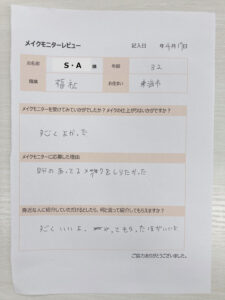 メイクモニターレビュー
記入日 年4月17日
お名前 S・A 様 年齢 32
職業 福祉 お住まい
メイクモニターを受けてみていかがでしたか？メイクの仕上がりはいかがですか？
すごくよかった
メイクモニターに応募した理由
自分のあってるメイクをしりたかった
身近な人に紹介していただけるとしたら、何と言って紹介してもらえますか？
すごくいいよ、やってもらったほうがいいよ
ご協力ありがとうございました。